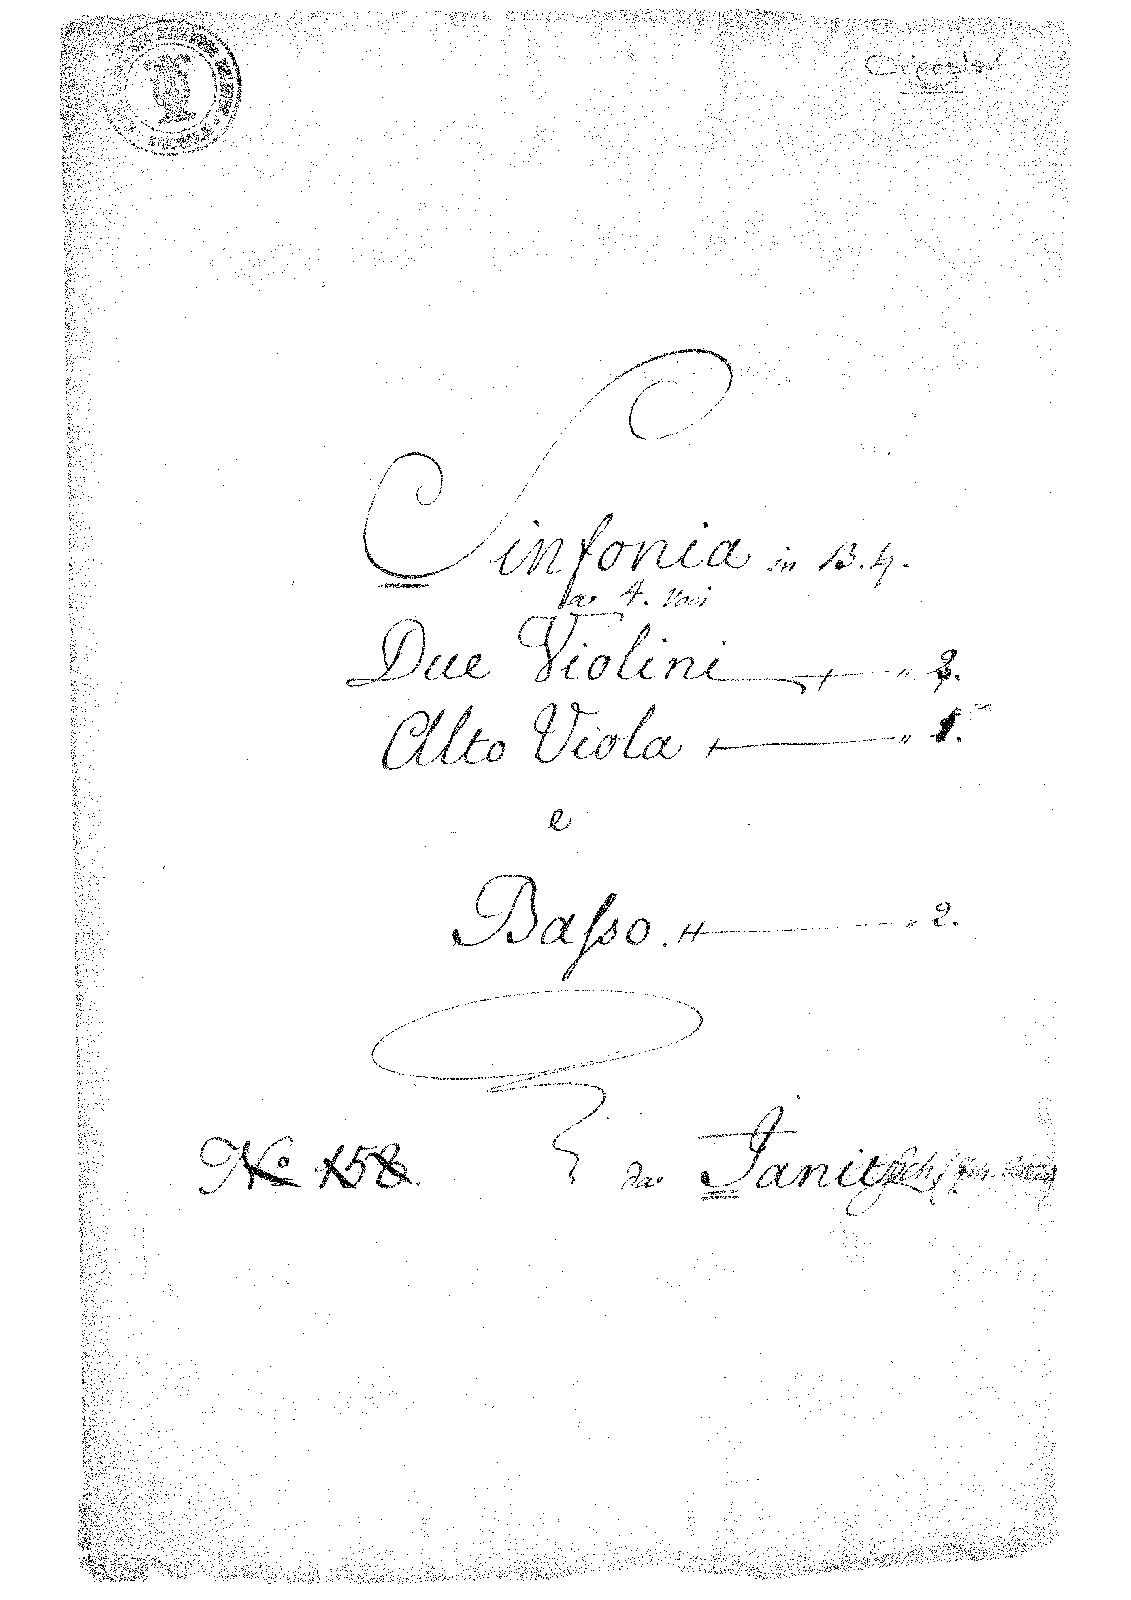 Sinfonia in B. 4.
a 4. Voci
Due Violini " 2.
Alto Viola " 1.
e
Basso. " 2.
No 158.
da Janitsch